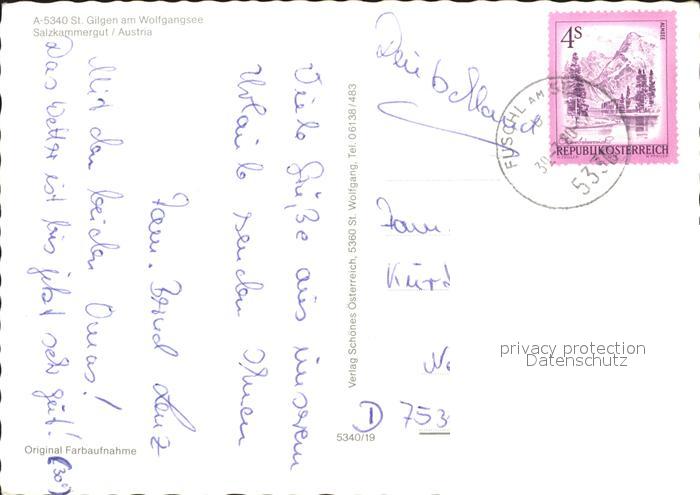 A-5340 St. Gilgen am Wolfgangsee
Salzkammergut / Austria
Viele Grüße aus unserem
Urlaub senden Ihnen
Fam. Bernd Lenz
Mit den beiden Omas!
Das Wetter ist bis jetzt sehr gut! (30°)
Original Farbaufnahme
Verlag Schönes Österreich, 5360 St. Wolfgang, Tel. 06138/483
5340/19
Deutschland
4 S
ALMSEE
REPUBLIK ÖSTERREICH
FUSCHL AM
5330
Fam.
Kurt
D 753
privacy protection
Datenschutz